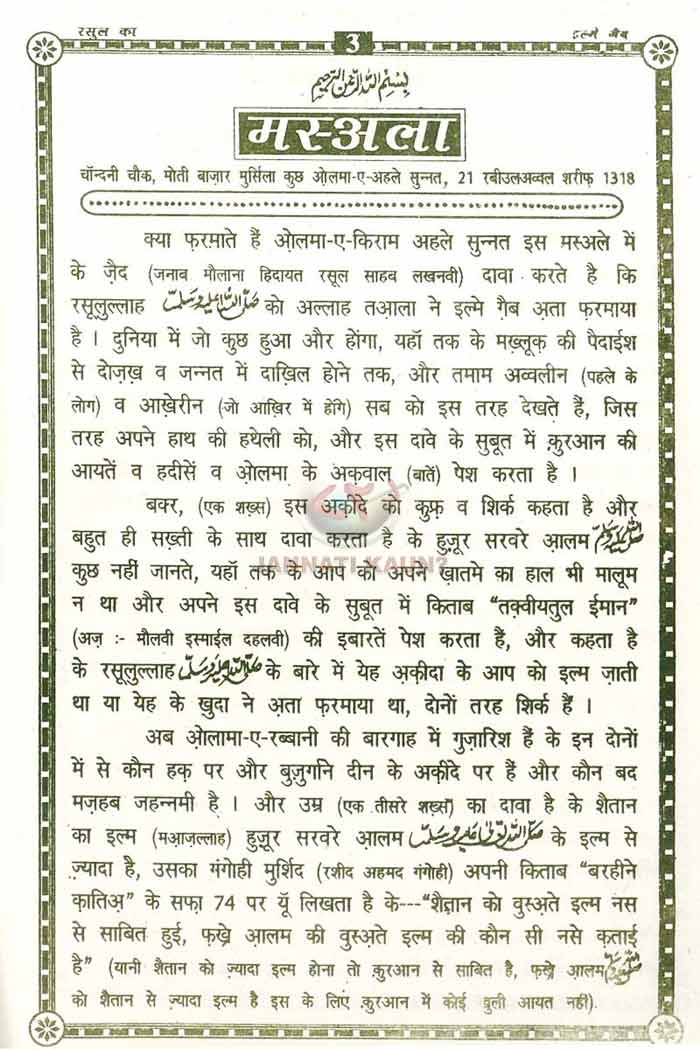 रसूल का 3 इल्मे ग़ैब
بِسْمِ اللّٰهِ الرَّحْمٰنِ الرَّحِيْمِ
मस्अला
चॉन्दनी चौक, मोती बाज़ार मुर्सिला कुछ ओ़लमा-ए-अहले सुन्नत, 21 रबीउलअव्वल शरीफ़ 1318
क्या फ़रमाते हैं ओ़लमा-ए-किराम अहले सुन्नत इस मस्अले में
के ज़ैद (जनाब मौलाना हिदायत रसूल साहब लखनवी) दावा करते है कि
रसूलुल्लाह صلى الله عليه وسلم को अल्लाह तआला ने इल्मे ग़ैब अता फ़रमाया
है । दुनिया में जो कुछ हुआ और होंगा, यहॉ तक के मख़्लूक़ की पैदाईश
से दोज़ख़ व जन्नत में दाख़िल होने तक, और तमाम अव्वलीन (पहले के
लोग) व आख़ेरीन (जो आख़िर में होंगे) सब को इस तरह देखते हैं, जिस
तरह अपने हाथ की हथेली को, और इस दावे के सुबूत में क़ुरआन की
आयतें व हदीसें व ओ़लमा के अक़वाल (बातें) पेश करता है ।
बक्र, (एक शख़्स) इस अक़ीदे को कुफ़्र व शिर्क कहता है और
बहुत ही सख़्ती के साथ दावा करता है के हुज़ूर सरवरे आ़लम صلى الله عليه وسلم
JANNATI KAUN?
कुछ नहीं जानते, यहॉ तक के आप को अपने ख़ातमे का हाल भी मालूम
न था और अपने इस दावे के सुबूत में किताब “तक़्वीयतुल ईमान”
(अज़ :- मौलवी इस्माईल दहलवी) की इबारतें पेश करता हैं, और कहता है
के रसूलुल्लाह صلى الله عليه وسلم के बारे में येह अक़ीदा के आप को इल्म ज़ाती
था या येह के खुदा ने अ़ता फ़रमाया था, दोनों तरह शिर्क हैं ।
अब ओ़लामा-ए-रब्बानी की बारगाह में गुज़ारिश हैं के इन दोनों
में से कौन हक़ पर और बुज़ुर्गाने दीन के अक़ीदे पर हैं और कौन बद
मज़हब जहन्नमी है । और उम्र (एक तीसरे शख़्स) का दावा है के शैतान
का इल्म (मआज़ल्लाह) हुज़ूर सरवरे आ़लम صلى الله تعالى عليه وسلم के इल्म से
ज़्यादा है, उसका गंगोही मुर्शिद (रशीद अहमद गंगोही) अपनी किताब “बरहीने
क़ातिअ़” के सफ़ा 74 पर यूॅ लिखता है के---“शैतान को वुस्अ़ते इल्म नस
से साबित हुई, फ़ख़्रे आ़लम की वुस्अ़ते इल्म की कौन सी नसे क़ताई
है” (यानी शैतान को ज़्यादा इल्म होना तो क़ुरआन से साबित है, फ़ख़्रे आ़लम صلى الله عليه وسلم
को शैतान से ज़्यादा इल्म है इस के लिए क़ुरआन में कोई खुली आयत नही).